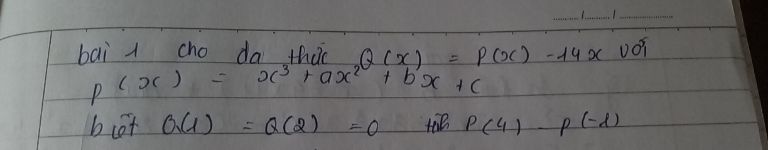 bai 1 cho đa thức Q(x) = P(x) - 14x với
p(x) = x³ + ax² + bx + c
biết Q(1) = Q(2) = 0 tính P(4) - P(-1)